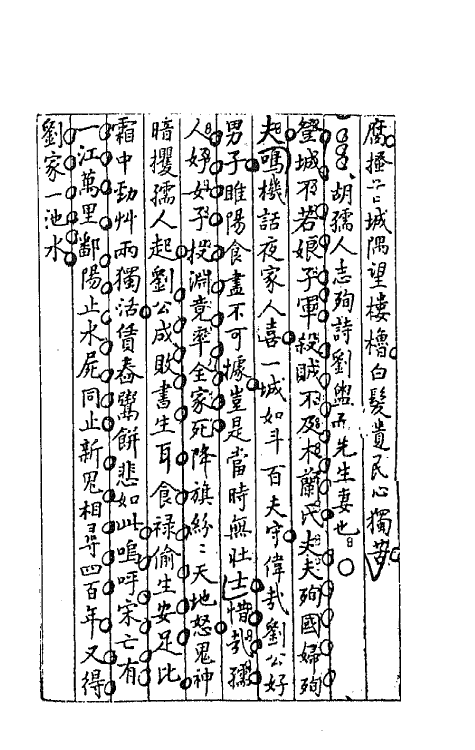 腐搔城隅望樓櫓白髮遺民心獨苦
胡孺人志殉詩劉先生妻也
登城不若娘子軍殺賊不及木蘭氏夫夫殉國婦殉
夫鳴機話夜家人喜一城如斗百夫守偉哉劉公好
男子睢陽食盡不可據豈是當時無壯士惜哉孺
人好女子投淵竟率全家死降旗紛〻天地怒鬼神
暗攫孺人起劉公成敗書生耳食祿偷生安足比
霜中勁艸兩獨活賃舂鬻餅悲如此嗚呼宋亡有
一江萬里鄱陽止水屍同止新鬼相尋四百年又得
劉家一池水